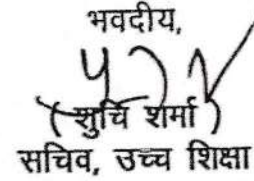 भवदीय,
( शुचि शर्मा )
सचिव, उच्च शिक्षा